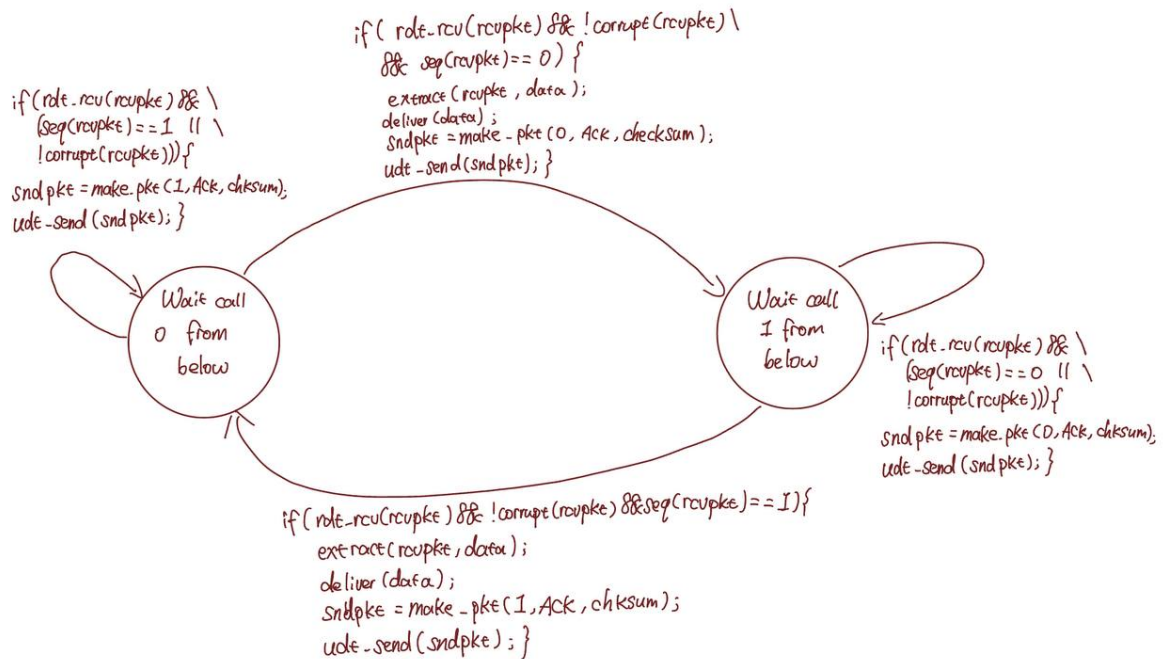 if( rdt-rcv(rcvpkt) && !corrupt(rcvpkt) \
&& seq(rcvpkt)== 0) {
extract(rcvpkt, data);
deliver(data);
sndpkt=make-pkt(0, Ack, checksum);
udt-send(sndpkt); }
if(rdt-rcv(rcvpkt) && \
(seq(rcvpkt)==1 || \
!corrupt(rcvpkt))){
sndpkt=make.pkt(1, Ack, chksum);
udt-send(sndpkt); }
Wait call
0 from
below
Wait call
1 from
below
if(rdt-rcv(rcvpkt) && \
(seq(rcvpkt)==0 || \
!corrupt(rcvpkt))){
sndpkt=make.pkt(0, Ack, chksum);
udt-send(sndpkt); }
if(rdt-rcv(rcvpkt) && !corrupt(rcvpkt) && seq(rcvpkt)==1){
extract(rcvpkt, data);
deliver(data);
sndpkt = make-pkt(1, Ack, chksum);
udt-send(sndpkt); }